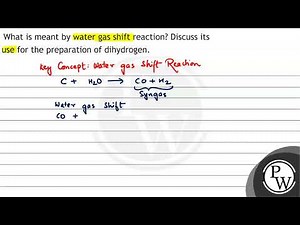 What is meant by water gas shift reaction? Discuss its
use for the preparation of dihydrogen.
Key Concept: Water gas Shift Reaction
C + H₂O ⟶ CO + H₂
Syngas
Water gas Shift
CO +
P
W
PW